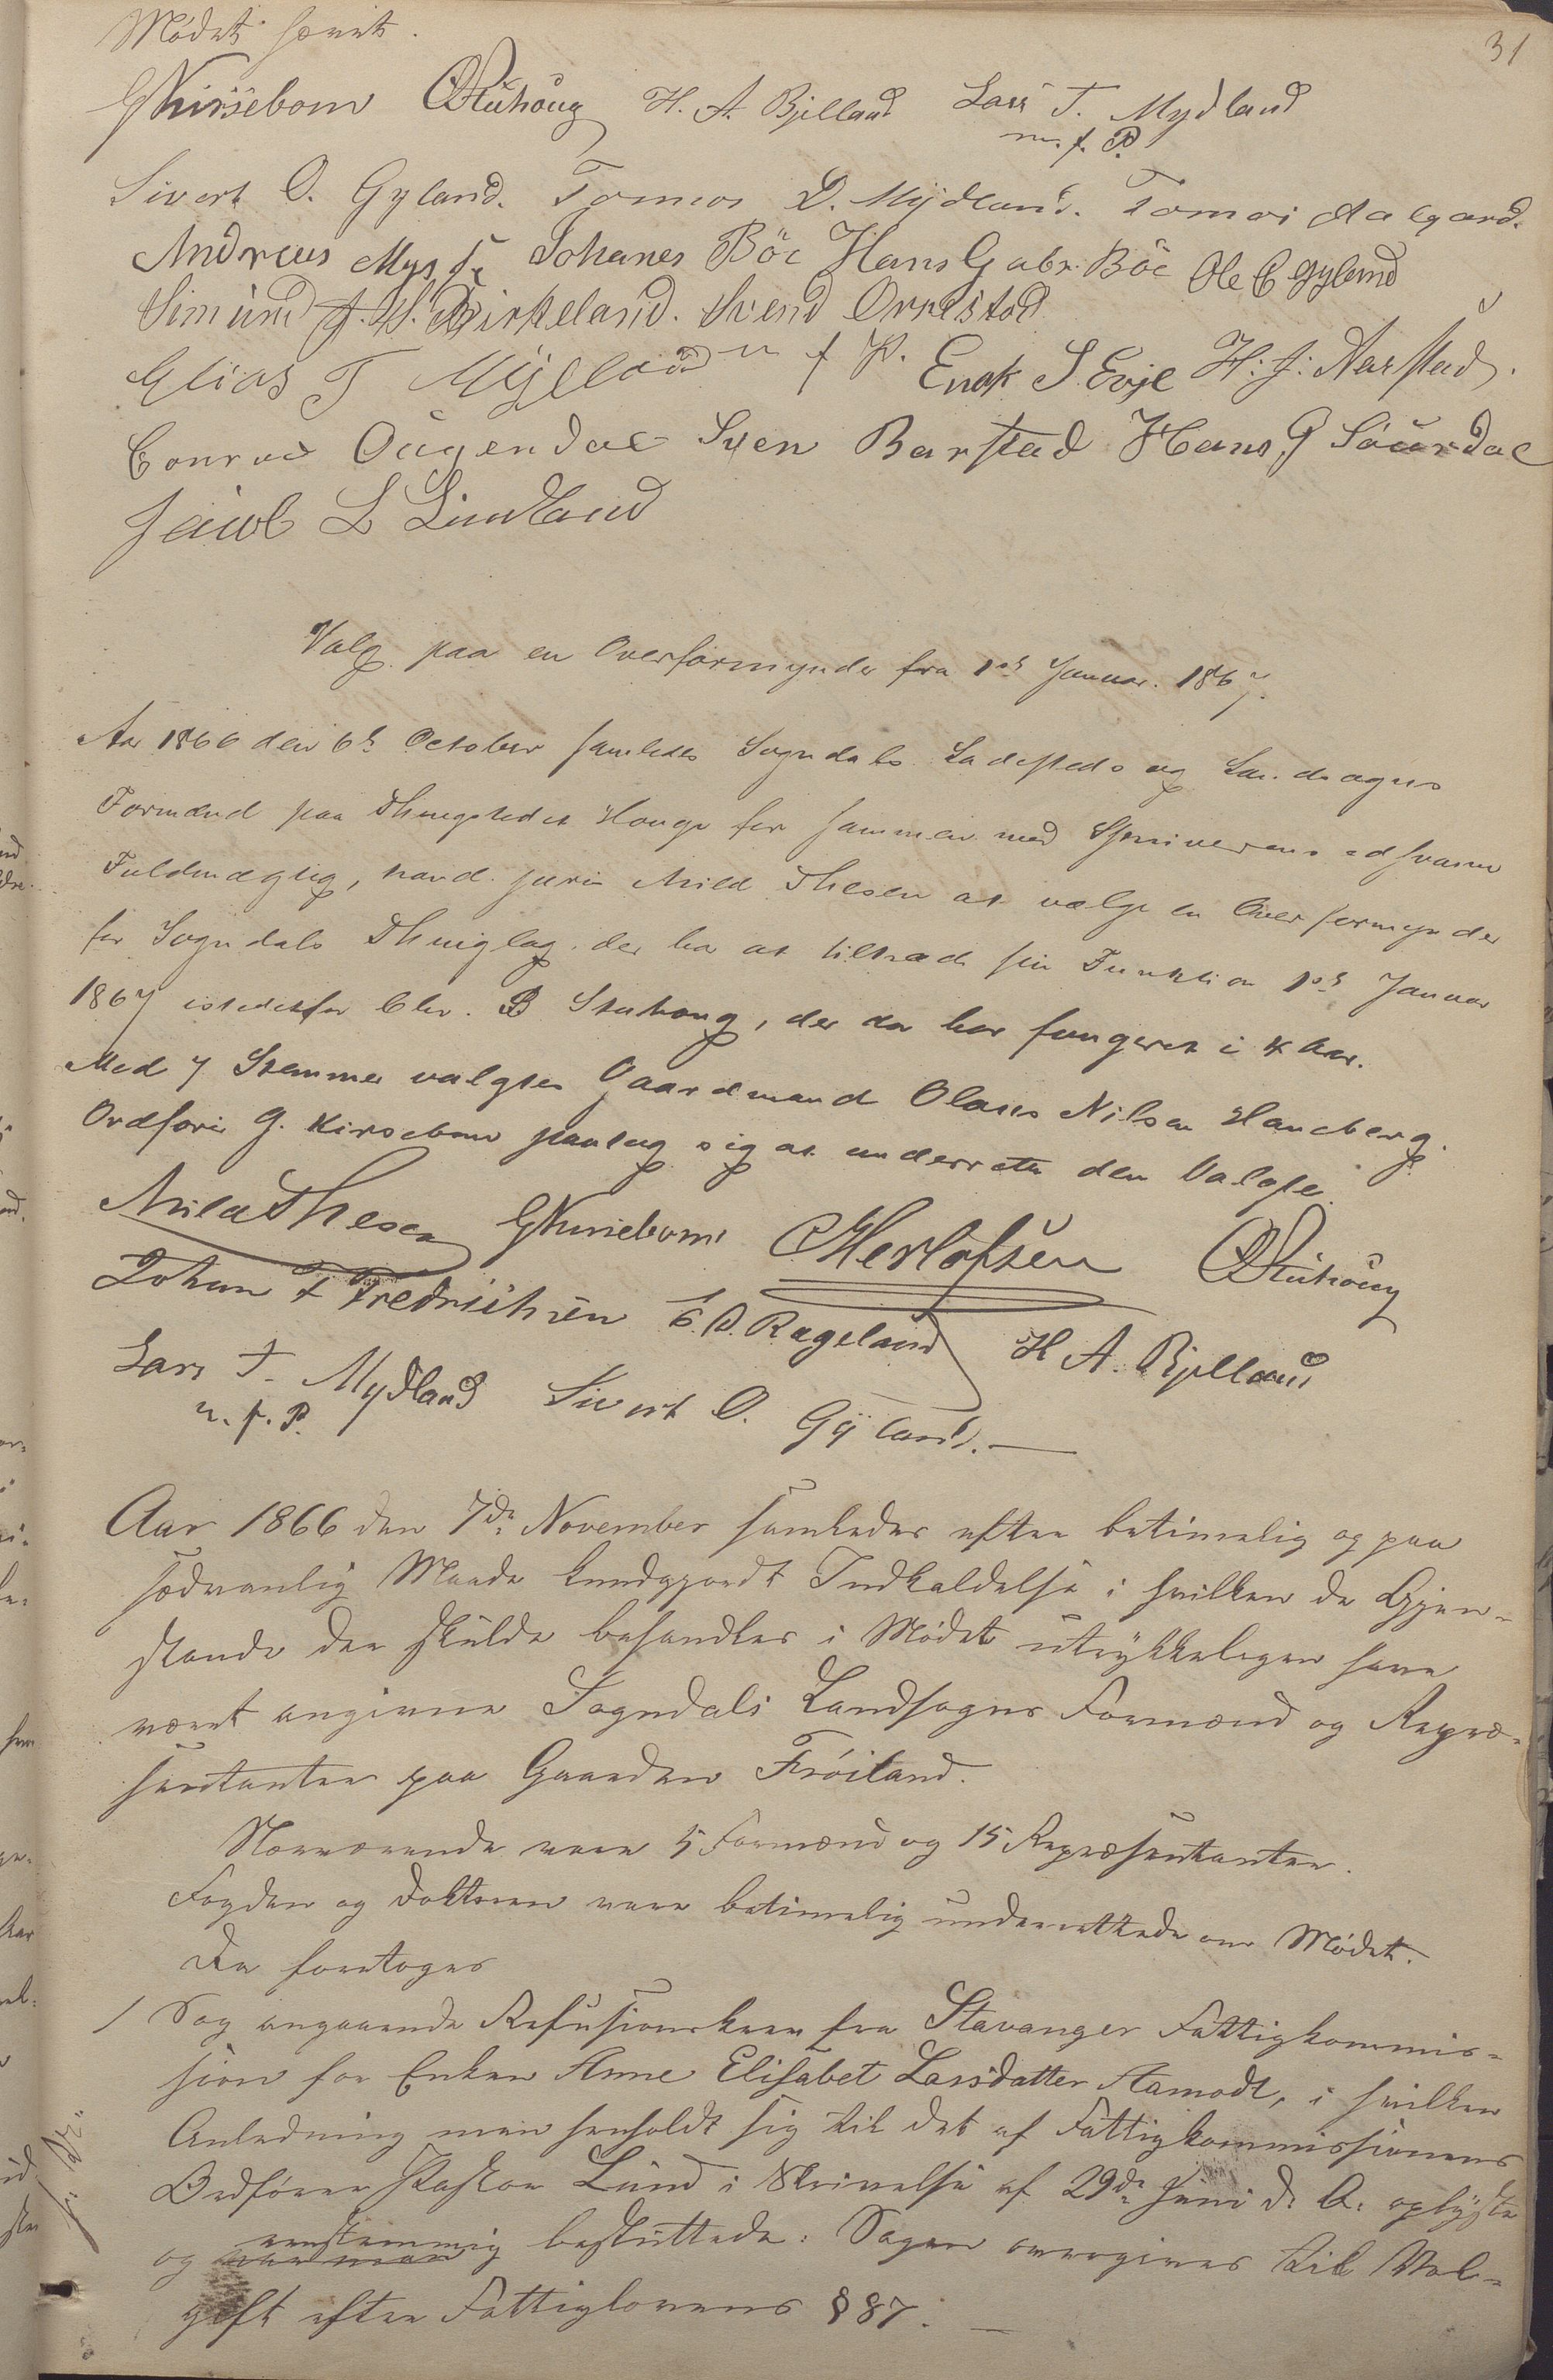 31
Mødet hævet.
G Kirsebom O Stuhoug H. A. Bjelland Lars T. Mydland
m. f. P.
Sivert O. Gyland. Tomas D. Mydland. Tomas Aalgaard.
Andreas Mysse Johanes Böe Hans Gabr. Böe Ole E Gyland
Simund J. S. Birkeland. Svend Orrestad
Elias T Mydland m f P. Enok S. Evje H. J. Aarstad.
Conrad Ougendal Sven Barstad Hans G Söurdal
Jacob L Lindland
Valg paa en Overformynder fra 1ste Januar. 1867.
Aar 1866 den 6te October samledes Sogndals Ladesteds og Landsogns
Formænd paa Thingstedet Houge for sammen med Skriverens edsvorne
Fuldmægtig, cand. juris Thesen at vælge en Overformynder
for Sogndals Thinglag, der har at tiltræde sin Funktion 1ste Januar
1867 istedetfor Chr. B Stuhoug, der da har fungeret i 4 Aar.
Med 7 Stemmer valgtes Gaardmand Olaus Nilsen Haneberg.
Ordfører G. Kirsebom paatog sig at underrette den Valgte.
Thesen G Kirsebom Herlofsen O Stuhoug
Johan F Fredrichsen E. D. Rageland H A. Bjelland
Lars T. Mydland Sivert O. Gyland.
m. f. P.
Aar 1866 den 7de November samledes efter betimelig og paa
sædvanlig Maade kundgjordt Indkaldelse i hvilken de Gjen-
stande der skulde behandles i Mødet udtrykkeligen have
været angivne Sogndals Landsogns Formænd og Repræ-
sentanter paa Gaarden Fröiland.
Nærværende vare 5 Formænd og 15 Repræsentanter.
Fogden og Doktoren vare betimelig underrettede om Mødet.
Der foretoges
1 Sag angaaende Refusionskrav fra Stavanger Fattigkommis-
sion for Enken Anne Elisabet Larsdatter Aamodt, i hvilken
Anledning man henholdt sig til det af Fattigkommissionens
Ordfører Pastor Lund i Skrivelse af 29de Juni d. A. oplyste
og eenstemmig besluttede: Sagen overgives til Vold-
gift efter Fattiglovens § 87.